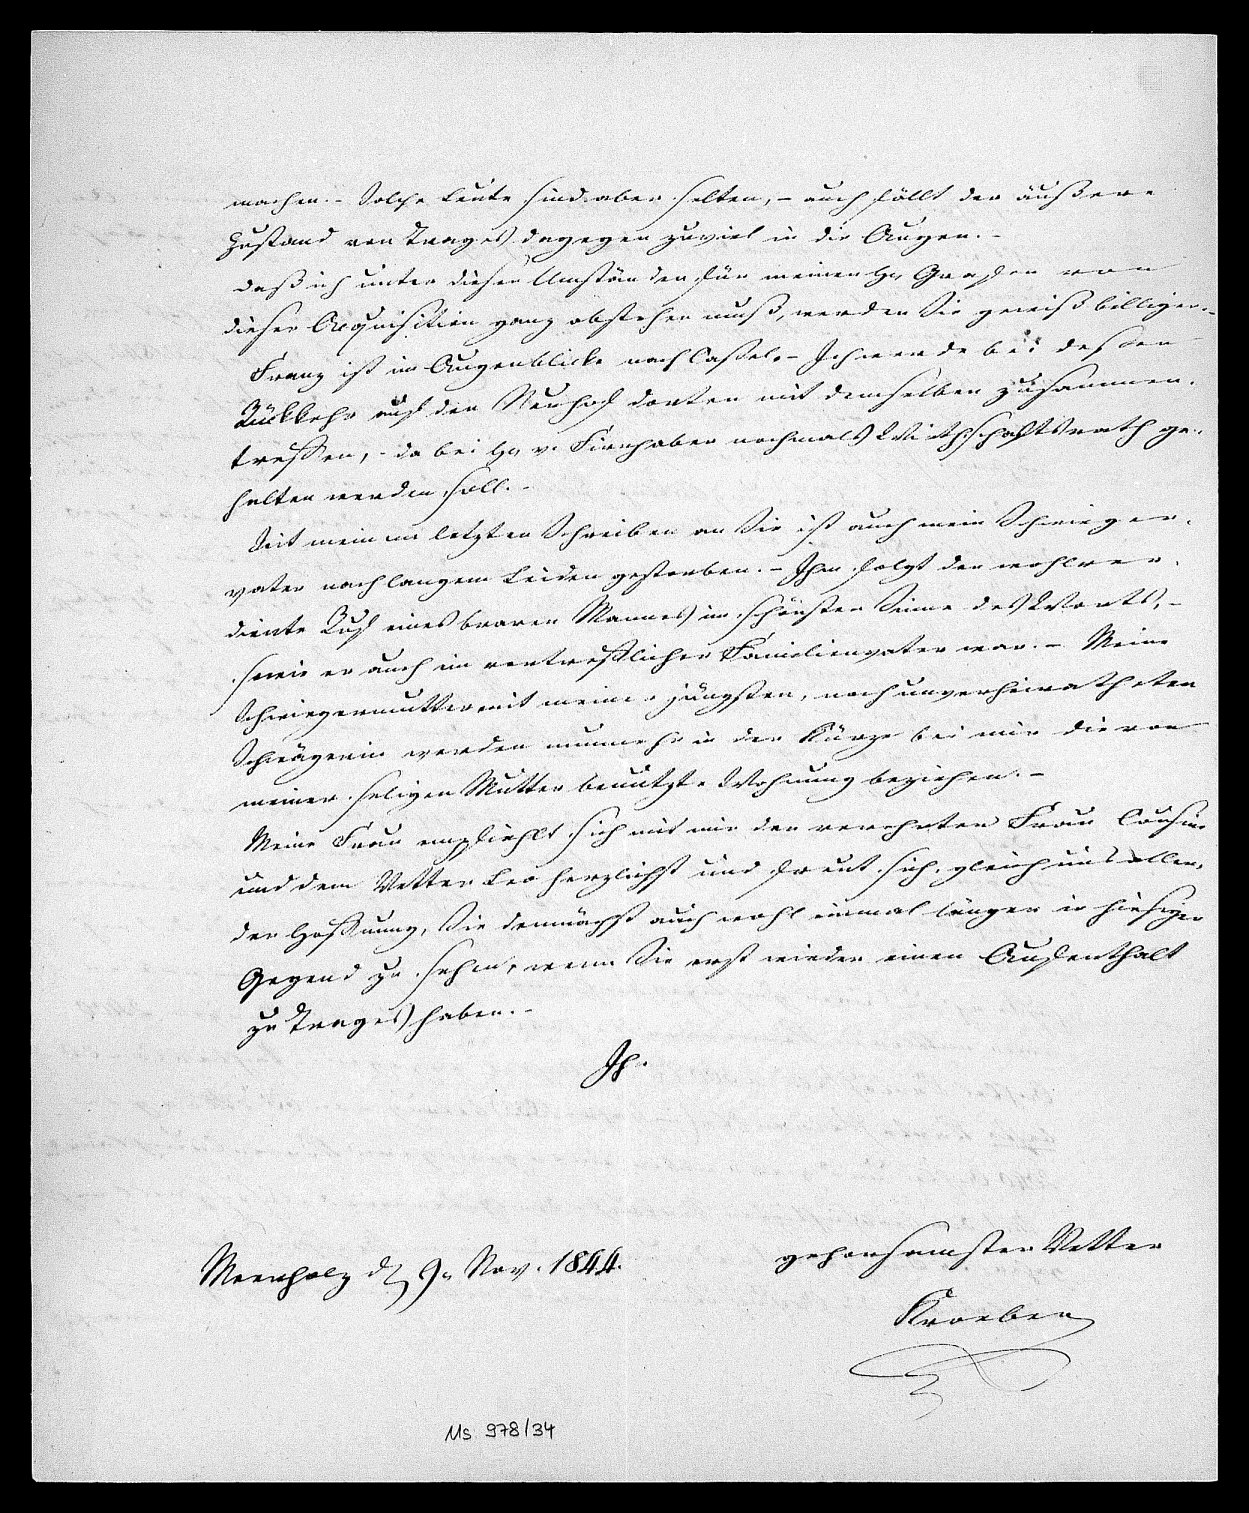 machen. - Solche Leute sind aber selten, - auch fällt der äußere
Zustand von Trages dagegen zuviel in die Augen. -
Daß ich unter diesen Umständen für meinen H. Grafen von
dieser Acquisition ganz abstehen muß, werden Sie gewiß billigen. -
Franz ist im Augenblicke nach Cassel. - Ich werde bei dessen
Rückkehr auf den Neuhof dorten mit demselben zusammen-
treffen, - da bei H. v. Fienhaben nochmals Wirthschaftsrath ge-
halten werden soll. -
Seit meinem letzten Schreiben an Sie ist auch mein Schwieger-
vater nach langem Leiden gestorben. - Ihm folgt der wohlver-
diente Ruf eines braven Mannes im schönsten Sinne des Worts, -
sowie er auch ein vortrefflicher Familienvater war. - Meine
Schwiegermutter mit meiner jüngsten, noch unverheiratheten
Schwägerin werden nunmehr in der Kürze bei mir die von
meiner seligen Mutter benutzte Wohnung beziehen. -
Meine Frau empfiehlt sich mit mir der verehrten Frau Cousine
und dem Vetter Leo herzlichst und freut sich, gleich uns allen,
der Hoffnung, Sie demnächst auch wohl einmal länger in hiesiger
Gegend zu sehen, wenn Sie erst wieder einen Aufenthalt
zu Trages haben. -
Ihr
gehorsamster Vetter
Meerholz d. 9n Nov. 1844.
Kroeber
Ms 978/34